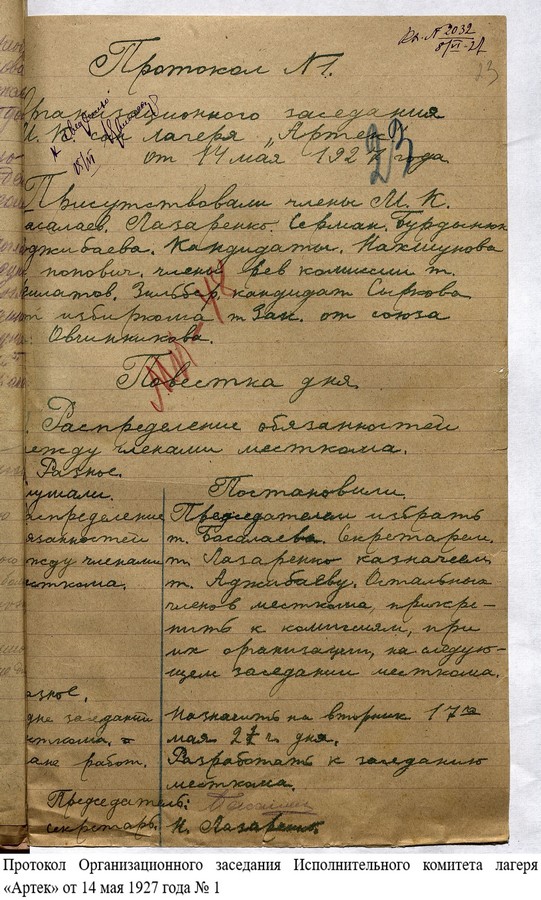 Вх. № 2032
8/VI-27
23
Протокол № 1.
Организационного заседания
И. К. сан лагеря „Артек"
от 14 мая 1927 года
23
Присутствовали члены М. К.
асалаев. Лазаренко. Серман. Бурдынюк
джибаева. Кандидаты. Нахшунова
попович. члены Рев комиссии т.
Зильбер. кандидат Сыркова
избиркома т. Зак. от союза
Овчинникова.
Повестка дня.
Распределение обязанностей
между членами месткома.
Разное.
ушали.
Постановили.
аспределение
язанностей
жду членами
сткома.
Председателем избрать
т. Басалаева. Секретарем.
т. Лазаренко казначеем
т. Аджибаеву. Остальных
членов месткома, прикре-
пить к комиссиям, при
их организации, на следую-
щем заседании месткома.
азное.
дне заседания
сткома. о
ане работ.
Назначить на вторник 17го
мая 27 г. дня.
Разработать к заседанию
месткома.
Председатель:
секретарь. Н. Лазаренко.
Протокол Организационного заседания Исполнительного комитета лагеря
«Артек» от 14 мая 1927 года № 1